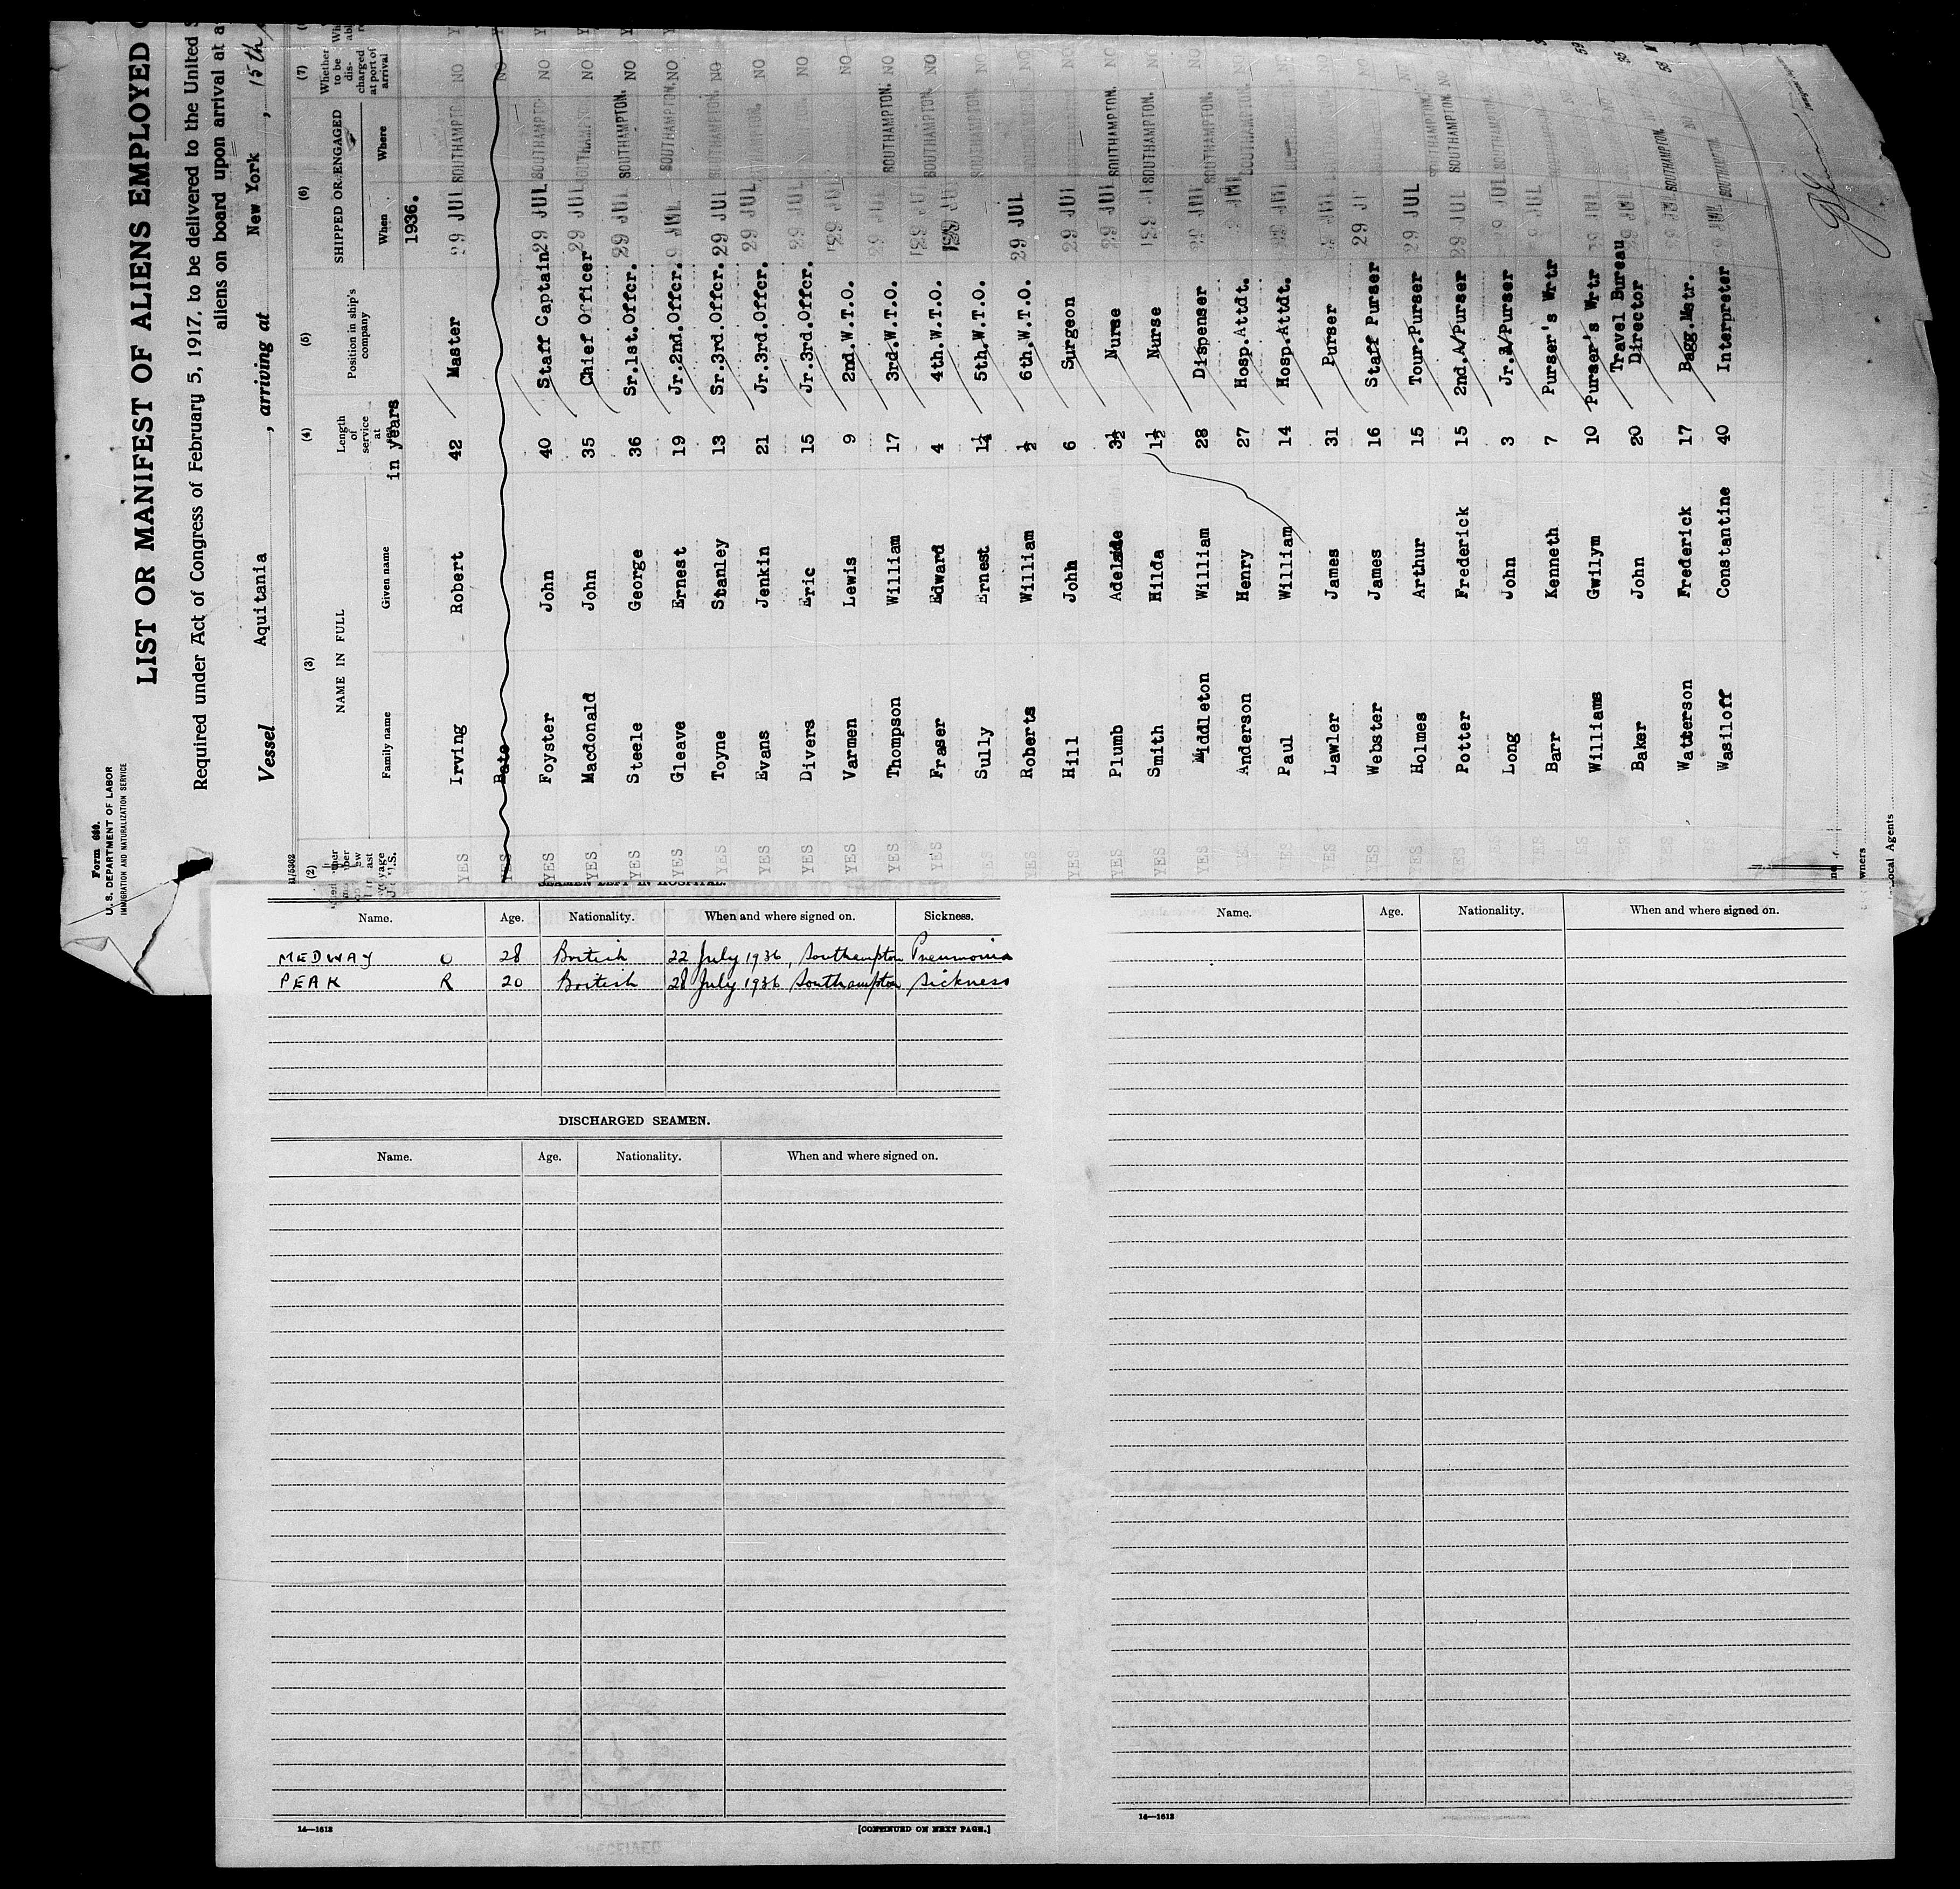 Form 680.
U. S. DEPARTMENT OF LABOR
IMMIGRATION AND NATURALIZATION SERVICE
LIST OR MANIFEST OF ALIENS EMPLOYED
Required under Act of Congress of February 5, 1917, to be delivered to the United
aliens on board upon arrival at
Vessel Aquitania, arriving at New York, 15th
(2) (3) (4) (5) (6) (7)
NAME IN FULL Length of service at in years Position in ship's company SHIPPED OR ENGAGED Whether to be discharged at port of arrival
Family name Given name When Where
1936.
YES Irving Robert 42 Master 29 JUL SOUTHAMPTO NO
YES Bate NO
YES Foyster John 40 Staff Captain 29 JUL SOUTHAMPTO NO
YES Macdonald John 35 Chief Officer 29 JUL SOUTHAMPTON NO
YES Steele George 36 Sr.1st.Offcr. 29 JUL SOUTHAMPTON. NO
YES Gleave Ernest 19 Jr.2nd.Offcr. 29 JUL SOUTHAMPTON. NO
YES Toyne Stanley 13 Sr.3rd.Offcr. 29 JUL SOUTHAMPTON. NO
YES Evans Jenkin 21 Jr.3rd.Offcr. 29 JUL SOUTHAMPTON. NO
YES Divers Eric 15 Jr.3rd.Offcr. 29 JUL NO
YES Varmen Lewis 9 2nd.W.T.O. 29 JUL NO
YES Thompson William 17 3rd.W.T.O. 29 JUL SOUTHAMPTON. NO
YES Fraser Edward 4 4th.W.T.O. 29 JUL SOUTHAMPTON. NO
YES Sully Ernest 1¼ 5th.W.T.O. 29 JUL SOUTHAMPTON NO
YES Roberts William ½ 6th.W.T.O. 29 JUL NO
YES Hill John 6 Surgeon 29 JUL NO
YES Plumb Adelaide 3½ Nurse 29 JUL SOUTHAMPTON. NO
YES Smith Hilda 1½ Nurse 29 JUL SOUTHAMPTON. NO
YES Middleton William 28 Dispenser 29 JUL SOUTHAMPTON. NO
YES Anderson Henry 27 Hosp.Attdt. JUL SOUTHAMPTON. NO
YES Paul William 14 Hosp.Attdt. 29 JUL NO
YES Lawler James 31 Purser 29 JUL NO
YES Webster James 16 Staff Purser 29 JUL NO
YES Holmes Arthur 15 Tour.Purser 29 JUL SOUTHAMPTON. NO
YES Potter Frederick 15 2nd.A/Purser 29 JUL SOUTHAMPTON. NO
YES Long John 3 Jr.A/Purser 29 JUL SOUTHAMPTON.
YES Barr Kenneth 7 Purser's Wrtr 29 JUL NO
YES Williams Gwilym 10 Purser's Wrtr 29 JUL NO
YES Baker John 20 Travel Bureau Director 29 JUL NO
YES Watterson Frederick 17 Bagg.Mstr. 29 JUL SOUTHAMPTON NO
Wasiloff Constantine 40 Interpreter 29 JUL SOUTHAMPTON
Local Agents
SEAMEN LEFT IN HOSPITAL.
Name. Age. Nationality. When and where signed on. Sickness.
MEDWAY 28 British 22 July 1936, Southampton Pneumonia
PEAK R 20 British 28 July 1936 Southampton Sickness
DISCHARGED SEAMEN.
Name. Age. Nationality. When and where signed on.
14—1613
[CONTINUED ON NEXT PAGE.]
Name. Age. Nationality. When and where signed on.
14—1613